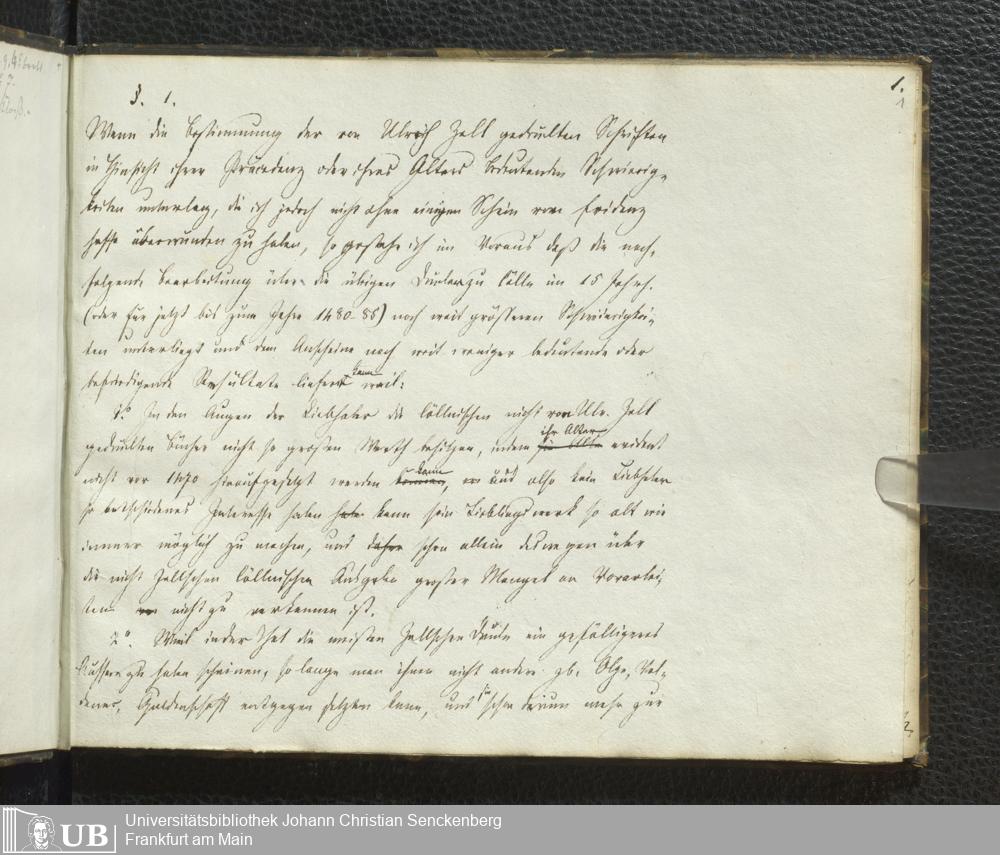 1.
1
§. 1.
Wenn die Bestimmung der von Ulrich Zell gedrukten Schriften
in Hinsicht ihrer Präcedenz oder ihres Alters bedeutenden Schwierig-
keiten unterlag, die ich jedoch nicht ohne einigen Schein von Evidenz
hoffe überwunden zu haben, so gestehe ich im Voraus daß die nach-
folgende Bearbeitung über die übrigen Drucker zu Cölln im 15 Jahrh.
(oder für jetzt bis zum Jahre 1480-85) noch weit größeren Schwierigkei-
ten unterliegt und dem Anscheine nach weit weniger bedeutende oder
befriedigende Resultate liefern kann weil:
1º. In den Augen der Liebhaber die Cöllnischen nicht von Ulr. Zell
gedrukten Bücher nicht so großen Werth besitzen, indem ihr Alter evident
nicht vor 1470 hinaufgesetzt werden kann, und also kein Liebhaber
so entschiedenes Interesse haben kann sein Lieblingswerk so alt wie
immer möglich zu machen, und schon allein deswegen über
die nicht Zellschen Cöllnischen Ausgaben großer Mangel an Vorarbei-
ten nicht zu verkennen ist.
2º. Weil in der That die meisten Zellschen Drucke ein gefälligeres
Aussere zu haben scheinen, so lange man ihnen nicht andere zb. Olpe, Vel-
dener, Guldenschaff entgegen setzen kann, und schon darum mehr zur
2
UB
Universitätsbibliothek Johann Christian Senckenberg
Frankfurt am Main